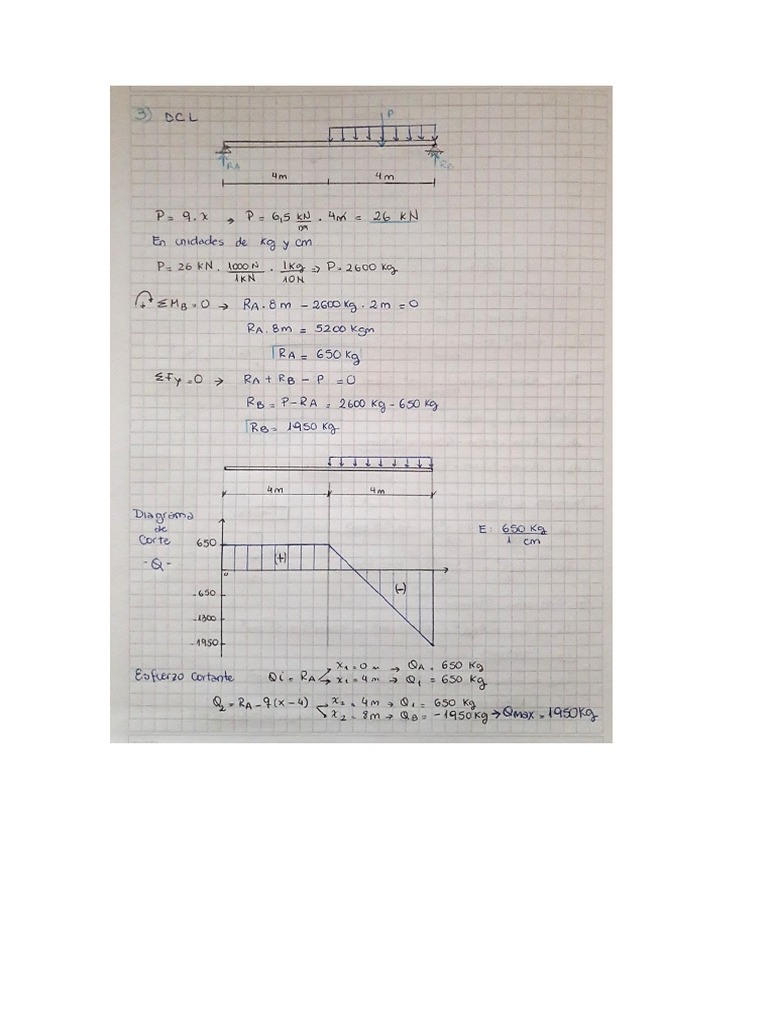 3) DCL
P
RA RB
4m 4m
P = q . x → P = 6,5 kN/m . 4m = 26 kN
En unidades de kg y cm
P = 26 KN . 1000 N/1 KN . 1 Kg/10 N ⇒ P = 2600 kg
ΣM_B = 0 → RA . 8m − 2600 kg . 2m = 0
RA . 8m = 5200 Kgm
RA = 650 Kg
ΣFy = 0 → RA + RB − P = 0
RB = P − RA = 2600 Kg − 650 Kg
RB = 1950 Kg
4m 4m
Diagrama
de
Corte
- Q -
E: 650 Kg / 1 cm
650
(+)
0
(-)
-650
-1300
-1950
Esfuerzo Cortante Qi = RA x₁ = 0 m → QA = 650 Kg
x₁ = 4 m → Q₁ = 650 Kg
Q₂ = RA − q (x − 4) x₂ = 4m → Q₁ = 650 Kg
x₂ = 8m → QB = − 1950 Kg → Qmax = 1950 Kg